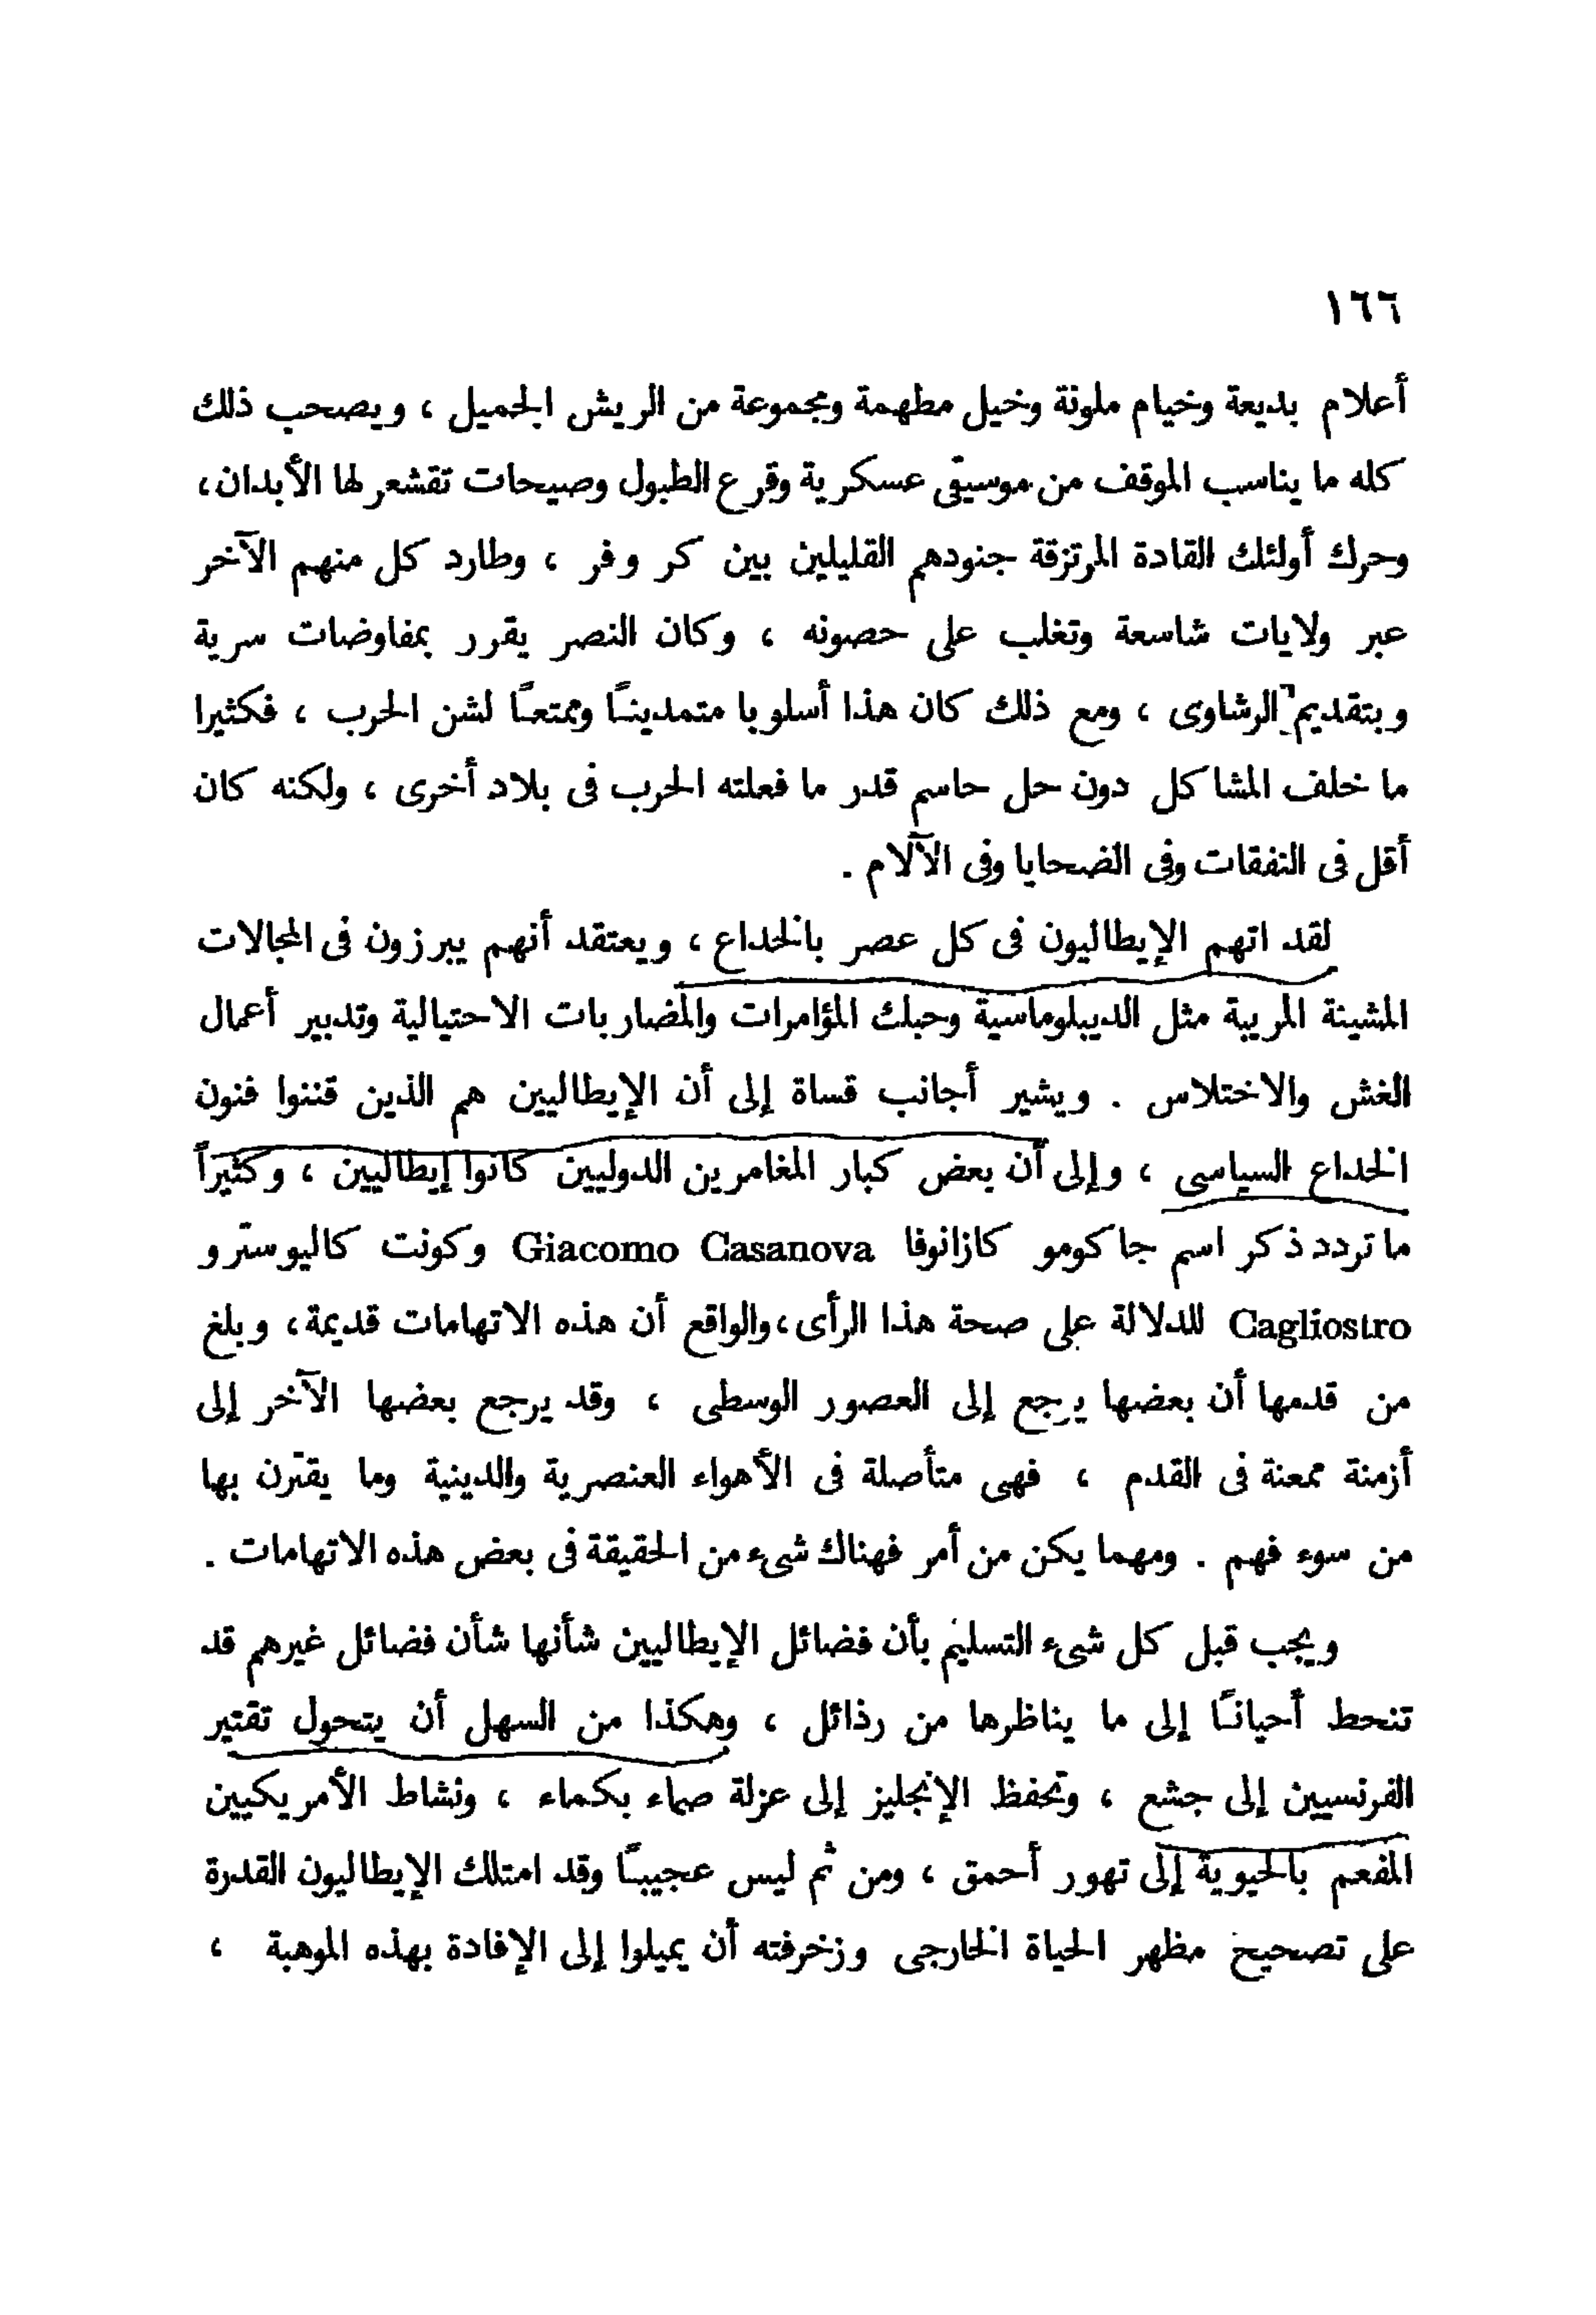 ١٦٦
أعلام بديعة وخيام ملونة وخيل مطهمة ومجموعة من الريش الجميل ، ويصحب ذلك
كله ما يناسب الموقف من موسيقى عسكرية وقرع الطبول وصيحات تقشعر لها الأبدان ،
وحرك أولئك القادة المرتزقة جنودهم القليلين بين كر وفر ، وطارد كل منهم الآخر
عبر ولايات شاسعة وتغلب على حصونه ، وكان النصر يقرر بمفاوضات سرية
وبتقديم الرشاوى ، ومع ذلك كان هذا أسلوبا متمدينًا وممتعًا لشن الحرب ، فكثيرا
ما خلف المشاكل دون حل حاسم قدر ما فعلته الحرب فى بلاد أخرى ، ولكنه كان
أقل فى النفقات وفى الضحايا وفى الآلام .
لقد اتهم الإيطاليون فى كل عصر بالخداع ، ويعتقد أنهم يبرزون فى المجالات
المشينة المريبة مثل الديبلوماسية وحبك المؤامرات والمضاربات الاحتيالية وتدبير أعمال
الغش والاختلاس . ويشير أجانب قساة إلى أن الإيطاليين هم الذين قننوا فنون
الخداع السياسى ، وإلى أن بعض كبار المغامرين الدوليين كانوا إيطاليين ، وكثيراً
ما تردد ذكر اسم جاكومو كازانوفا Giacomo Casanova وكونت كاليوسترو
Cagliostro للدلالة على صحة هذا الرأى ، والواقع أن هذه الاتهامات قديمة ، وبلغ
من قدمها أن بعضها يرجع إلى العصور الوسطى ، وقد يرجع بعضها الآخر إلى
أزمنة ممعنة فى القدم ، فهى متأصلة فى الأهواء العنصرية والدينية وما يقترن بها
من سوء فهم . ومهما يكن من أمر فهناك شىء من الحقيقة فى بعض هذه الاتهامات .
ويجب قبل كل شىء التسليم بأن فضائل الإيطاليين شأنها شأن فضائل غيرهم قد
تنحط أحيانًا إلى ما يناظرها من رذائل ، وهكذا من السهل أن يتحول تقتير
الفرنسيين إلى جشع ، وتحفظ الإنجليز إلى عزلة صماء بكماء ، ونشاط الأمريكيين
المفعم بالحيوية إلى تهور أحمق ، ومن ثم ليس عجيبًا وقد امتلك الإيطاليون القدرة
على تصحيح مظهر الحياة الخارجى وزخرفته أن يميلوا إلى الإفادة بهذه الموهبة ،